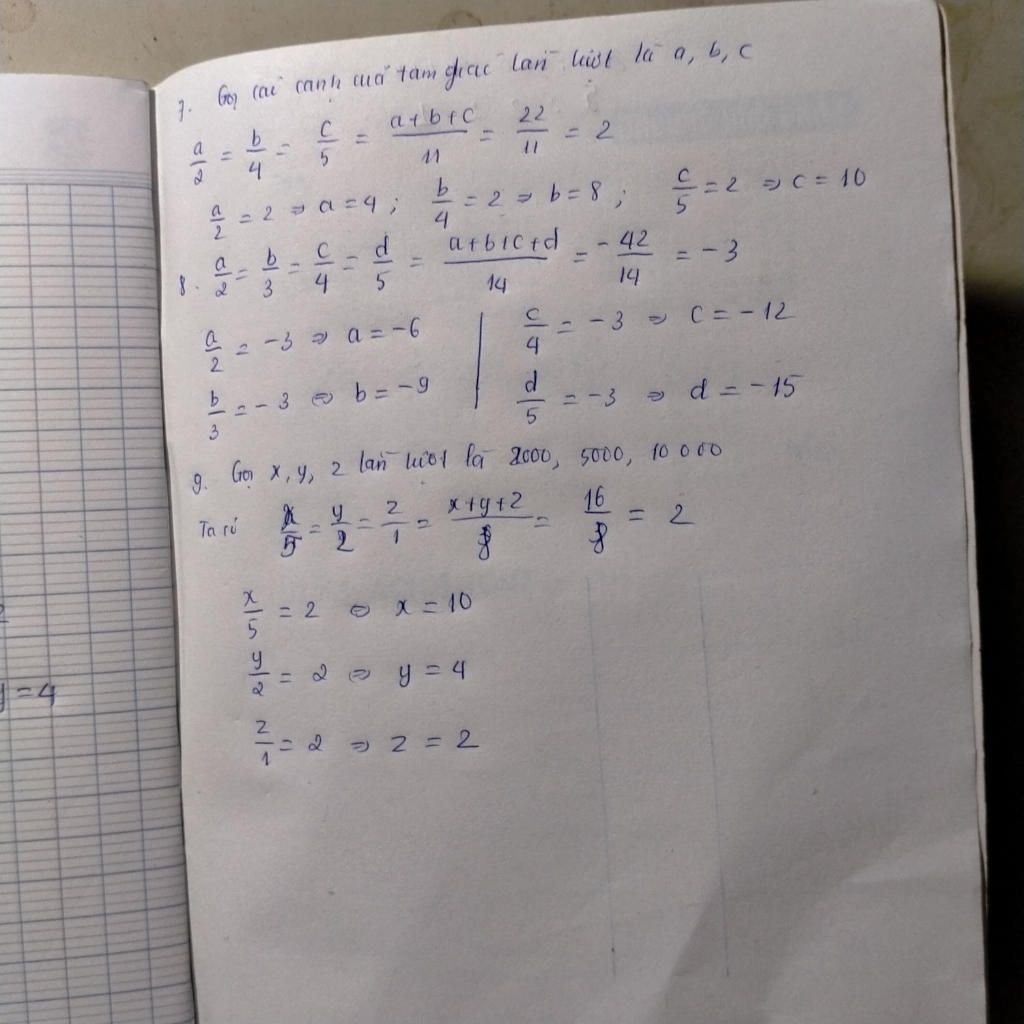 7. Gọi các cạnh của tam giác lần lượt là a, b, c
a/2 = b/4 = c/5 = (a+b+c)/11 = 22/11 = 2
a/2 = 2 ⇒ a = 4 ; b/4 = 2 ⇒ b = 8 ; c/5 = 2 ⇒ c = 10
8. a/2 = b/3 = c/4 = d/5 = (a+b+c+d)/14 = -42/14 = -3
a/2 = -3 ⇒ a = -6 | c/4 = -3 ⇒ c = -12
b/3 = -3 ⇒ b = -9 | d/5 = -3 ⇒ d = -15
9. Gọi x, y, z lần lượt là 2000, 5000, 10 000
Ta có x/5 = y/2 = z/1 = (x+y+z)/8 = 16/8 = 2
x/5 = 2 ⇒ x = 10
y/2 = 2 ⇒ y = 4
z/1 = 2 ⇒ z = 2
y = 4